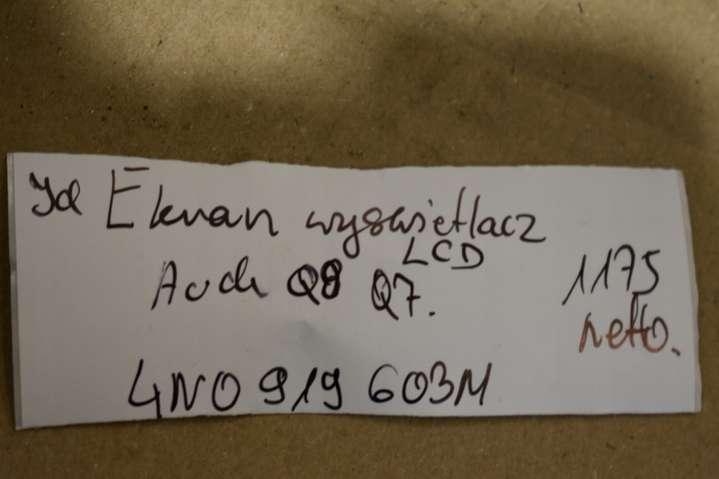 Ekran wyswietlacz
LCD
Audi Q8 Q7.
1175
netto.
4N0 919 603M